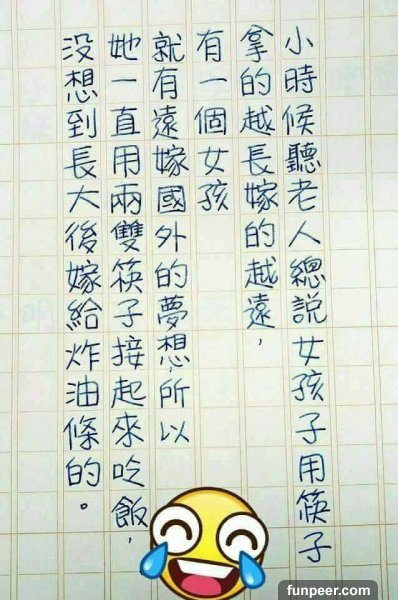 小時候聽老人總說女孩子用筷子
拿的越長嫁的越遠，
有一個女孩
就有遠嫁國外的夢想，所以
她一直用兩雙筷子接起來吃飯，
沒想到長大後嫁給炸油條的。
funpeer.com